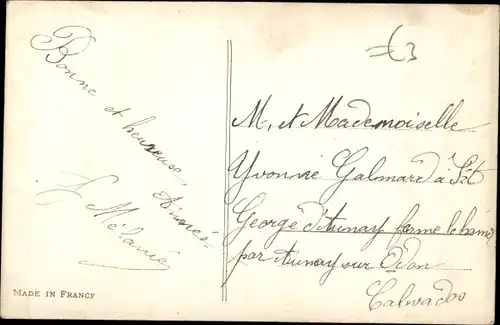 Bonne et heureuse
Année
Mélanie
MADE IN FRANCE
M. et Mademoiselle
Yvonne Galmard à St
George d'Aunay ferme
par Aunay sur Odon
Calvados